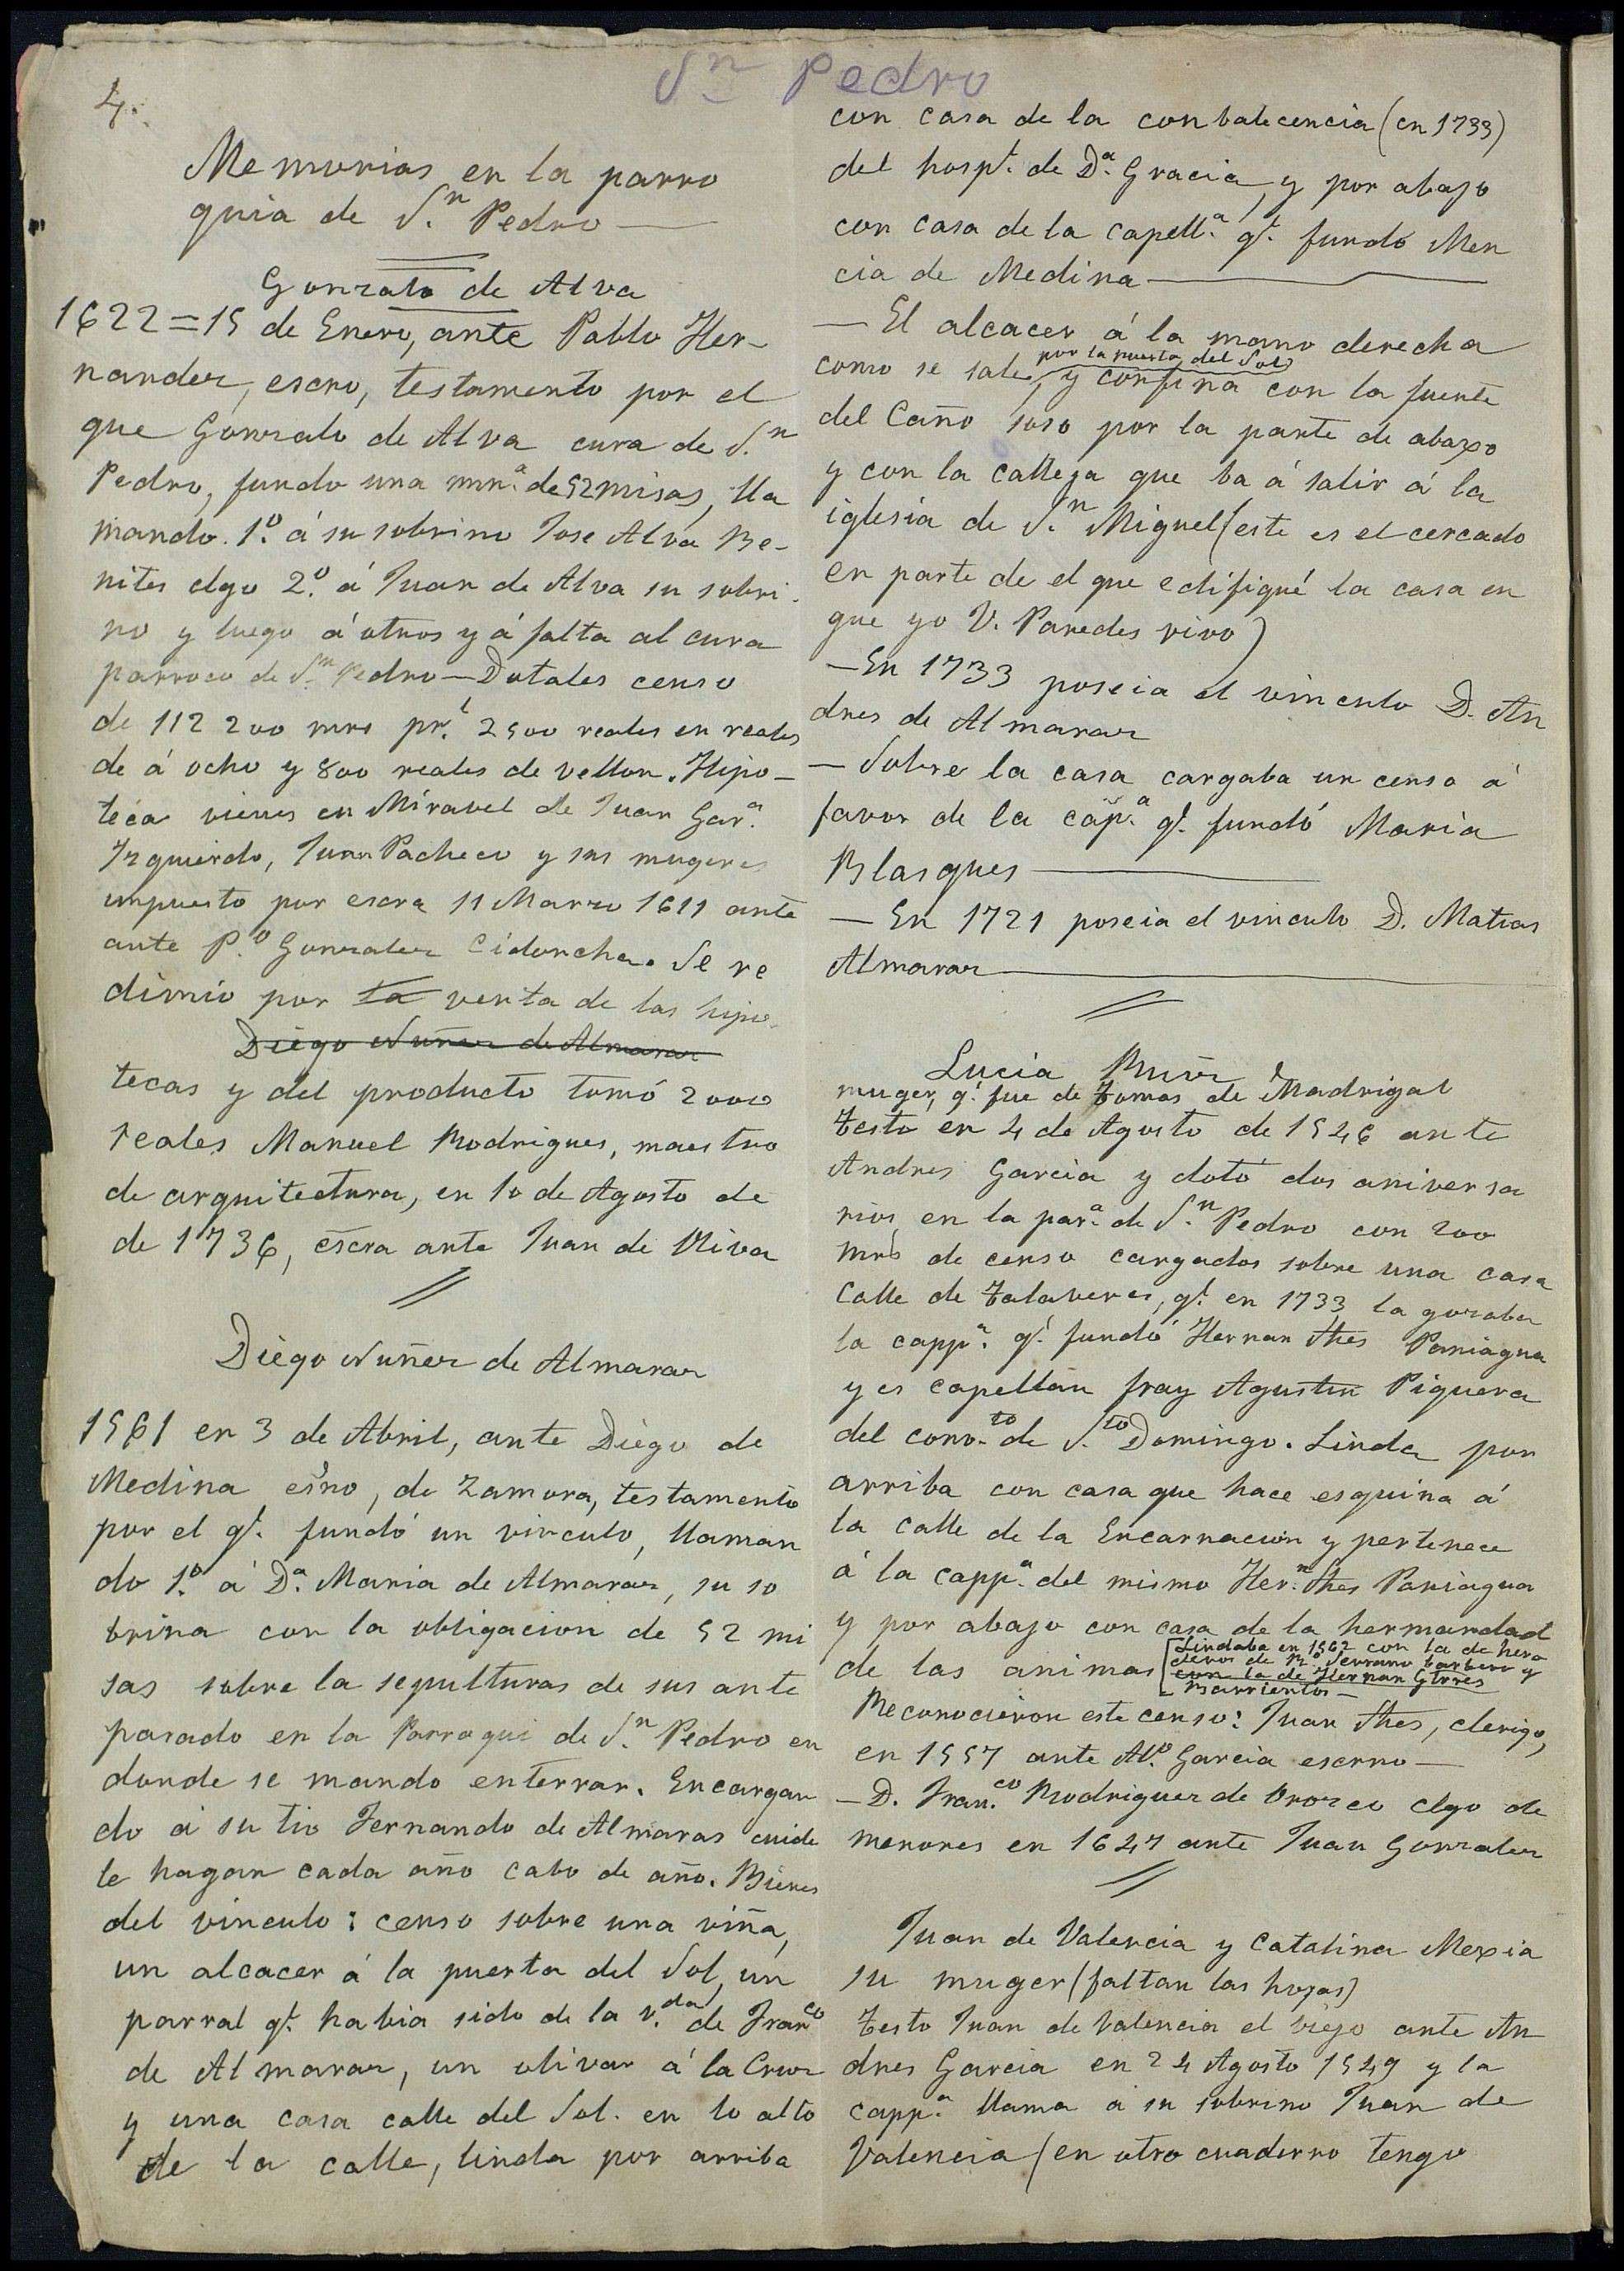 Sn Pedro
4.
Memorias en la parro
quia de S.n Pedro —
Gonzalo de Alva
1622 = 15 de Enero, ante Pablo Her-
nandez, escro, testamento por el
que Gonzalo de Alva cura de S.n
Pedro, fundo una mra.a de 52 misas, lla
mando. 1.o á su sobrino Jose Alva Be-
nites clgo 2.o á Juan de Alva su sobri-
no y luego á otros y á falta al cura
parroco de S.n Pedro — Dotales censo
de 112 200 mrs pr.l 2500 reales en reales
de á ocho y 800 reales de vellon. Hipo-
teca vienes en Miravel de Juan Gar.a
Izquierdo, Juan Pacheco y sus mugeres
impuesto por escra 11 Marzo 1611 ante
ante P.o Gonzalez Cidoncha. Se re
dimio por la venta de las hipo-
Diego Nuñez de Almaraz
tecas y del producto tomó 2000
reales Manuel Rodrigues, maestro
de arquitectura, en 10 de Agosto de
de 1736, escra ante Juan de Oliva
Diego Nuñez de Almaraz
1561 en 3 de Abril, ante Diego de
Medina esno, de Zamora, testamento
por el q.e fundó un vinculo, llaman
do 1.o á D.a Maria de Almaraz, su so
brina con la obligacion de 52 mi
sas sobre la sepulturas de sus ante
pasado en la Parroqui de S.n Pedro en
donde se mando enterrar. Encargan
do á su tio Fernando de Almaras cuide
le hagan cada año cabo de año. Bienes
del vinculo: censo sobre una viña,
un alcacer á la puerta del Sol, un
parral q.e habia sido de la v.da de Fran.co
de Almaraz, un olivar á la Cruz
y una casa calle del Sol. en lo alto
de la calle, linda por arriba
con casa de la conbalecencia (en 1733)
del hosp.l de D.a Gracia, y por abajo
con casa de la capell.a q.e fundó Men
cia de Medina —
— El alcacer á la mano derecha
por la puerta del Sol
como se sale, y confina con la fuente
del Caño soso por la parte de abaxo
y con la calleja que ba á salir á la
iglesia de S.n Miguel (este es el cercado
en parte de el que edifiqué la casa en
que yo V. Paredes vivo)
— En 1733 poseia el vinculo D. An
dres de Almaraz
— Sobre la casa cargaba un censo á
favor de la cap.a q.e fundó Maria
Blasques —
— En 1721 poseia el vinculo D. Matias
Almaraz —
Lucia Ruiz
muger, q.e fue de Tomas de Madrigal
Testo en 4 de Agosto de 1546 ante
Andres Garcia y dotó dos aniversa
rios en la par.a de S.n Pedro con 200
mrs de censo cargados sobre una casa
Calle de Talaveres, q.e en 1733 la gozaba
la capp.a q.e fundó Hernan Shes Paniagua
y es capellan fray Agustin Piquera
del conv.to de S.to Domingo. Linda por
arriba con casa que hace esquina á
la calle de la Encarnacion y pertenece
á la capp.a del mismo Her.n Shes Paniagua
y por abajo con casa de la hermandad
de las animas [Lindaba en 1562 con la de here
deros de R.o Serrano barbero y
con la de Hernan Gtrres
Barrientos —
Reconocieron este censo: Juan Shes, clerigo,
en 1557 ante Al.o Garcia escrno —
— D. Fran.co Rodriguez de Orozco clgo de
menores en 1647 ante Juan Gonzalez
Juan de Valencia y Catalina Mexia
su muger (faltan las hojas)
Testo Juan de Valencia el biejo ante An
dres Garcia en 24 Agosto 1549 y la
capp.a llama á su sobrino Juan de
Valencia (en otro cuaderno tengo